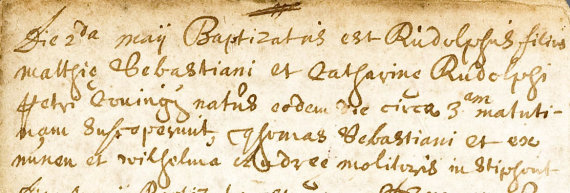 Die 2da maij Baptizatus est Rudolphus filius
matthie Sebastiani et Catharine Rudolphi
Petri Coningh natus eodem die circa 3am matuti-
nam Susceperunt, Thomas Sebastiani et ex
et wilhelma Andree molitoris in Stiphout
Baptiza